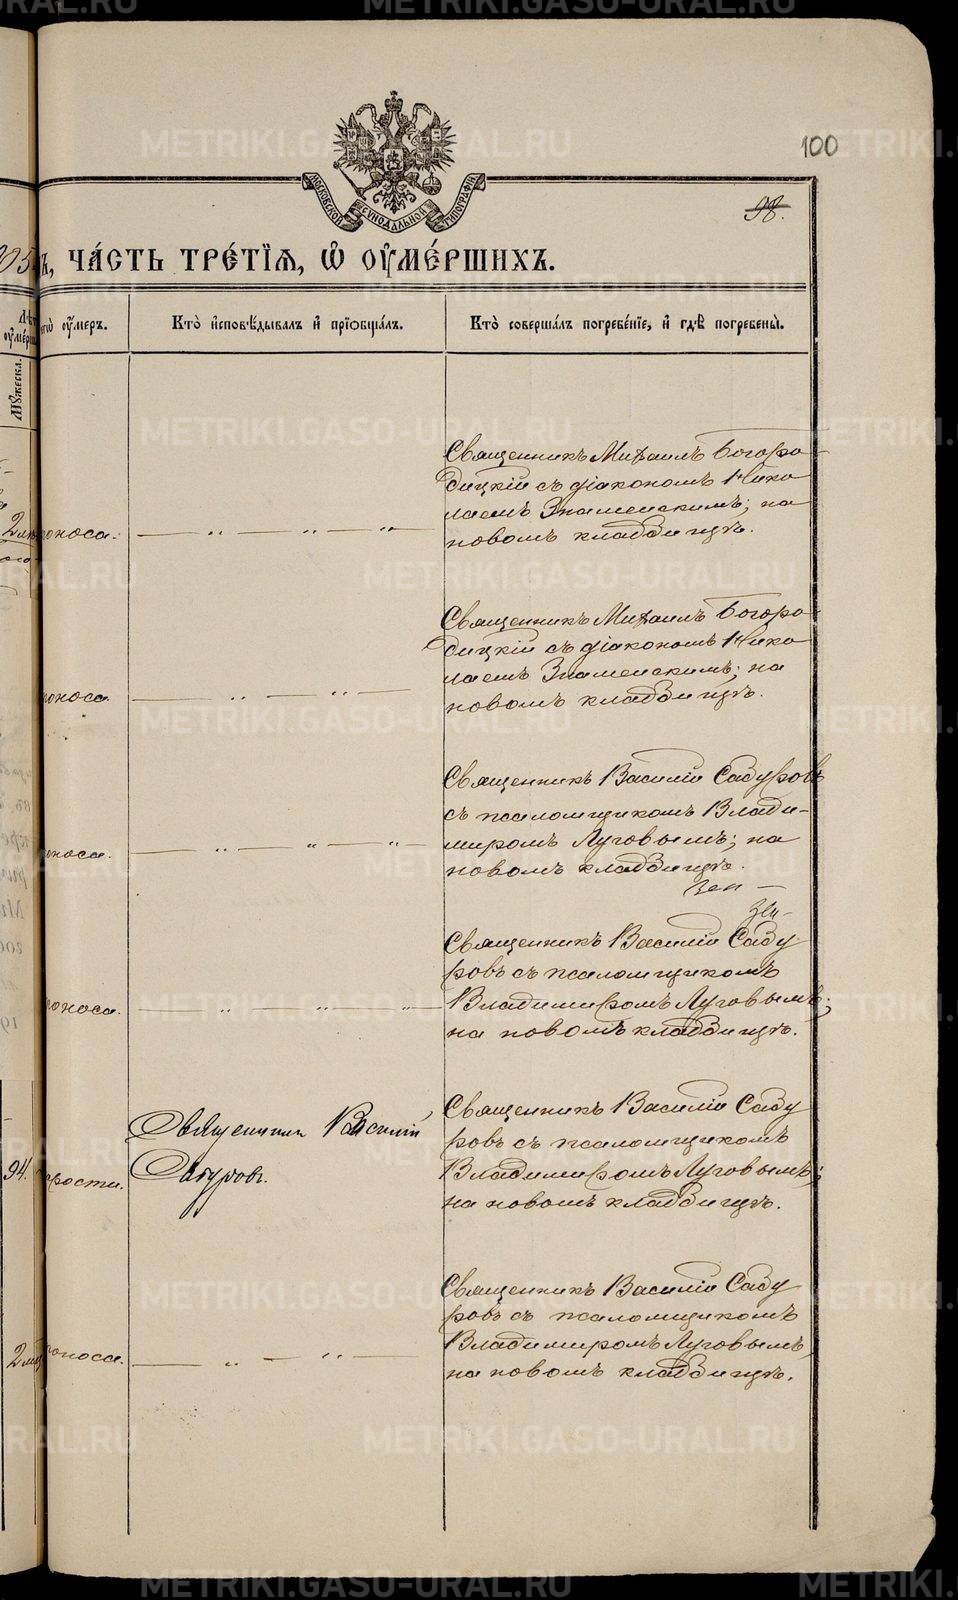 100
98.
МОСКОВСКОЙ СУНОДАЛЬНОЙ ТИПОГРАФІИ
Ъ, ЧА́СТЬ ТРЕ́ТІЯ, Ѡ҆ ОУ҆МЕ́РШИХЪ.
оу҆́меръ.
Кто̀ и҆сповѣ́дывалъ и҆ прїѡбща́лъ.
Кто̀ соверша́лъ погребе́нїе, и҆ гдѣ̀ погребены̀.
Мꙋ́жеска.
Священникъ Михаилъ Богоро-
дицкій съ діакономъ Нико
лаемъ Знаменскимъ; на
новомъ кладбищѣ.
оноса.
Священникъ Михаилъ Богоро
дицкій съ діакономъ Нико
лаемъ Знаменскимъ; на
новомъ кладбищѣ.
оноса.
Священникъ Василій Сабуровъ
съ псаломщикомъ Влади-
миромъ Луговымъ; на
новомъ кладбищѣ.
оноса.
Священникъ Василій Сабу
ровъ съ псаломщикомъ
Владимиромъ Луговымъ;
на новомъ кладбищѣ.
оноса.
Священникъ Василій
Сабуровъ.
Священникъ Василій Сабу
ровъ съ псаломщикомъ
Владимиромъ Луговымъ;
на новомъ кладбищѣ.
94.
рости.
Священникъ Василій Сабу
ровъ съ псаломщикомъ
Владимиромъ Луговымъ,
на новомъ кладбищѣ.
оноса.
METRIKI.GASO-URAL.RU